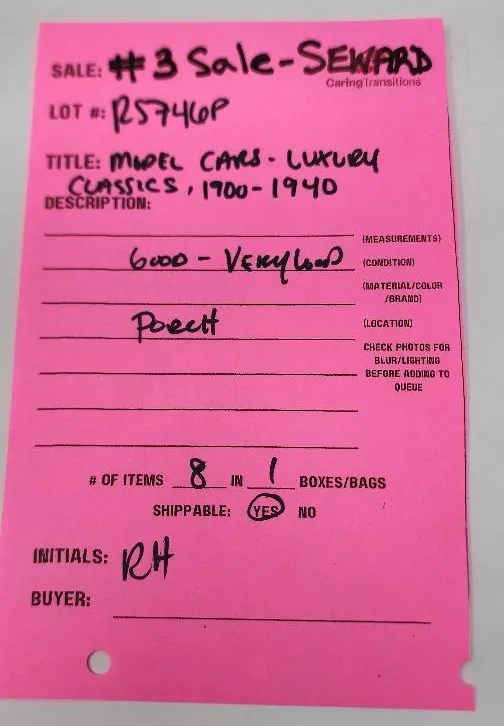 SALE: #3 Sale-SEWARD
Caring Transitions
LOT #: R5746P
TITLE: MODEL CARS - LUXURY
CLASSICS, 1900-1940
DESCRIPTION:
(MEASUREMENTS)
GOOD - VERY GOOD (CONDITION)
(MATERIAL/COLOR
/BRAND)
PORCH (LOCATION)
CHECK PHOTOS FOR
BLUR/LIGHTING
BEFORE ADDING TO
QUEUE
# OF ITEMS 8 IN 1 BOXES/BAGS
SHIPPABLE: YES NO
INITIALS: RH
BUYER: